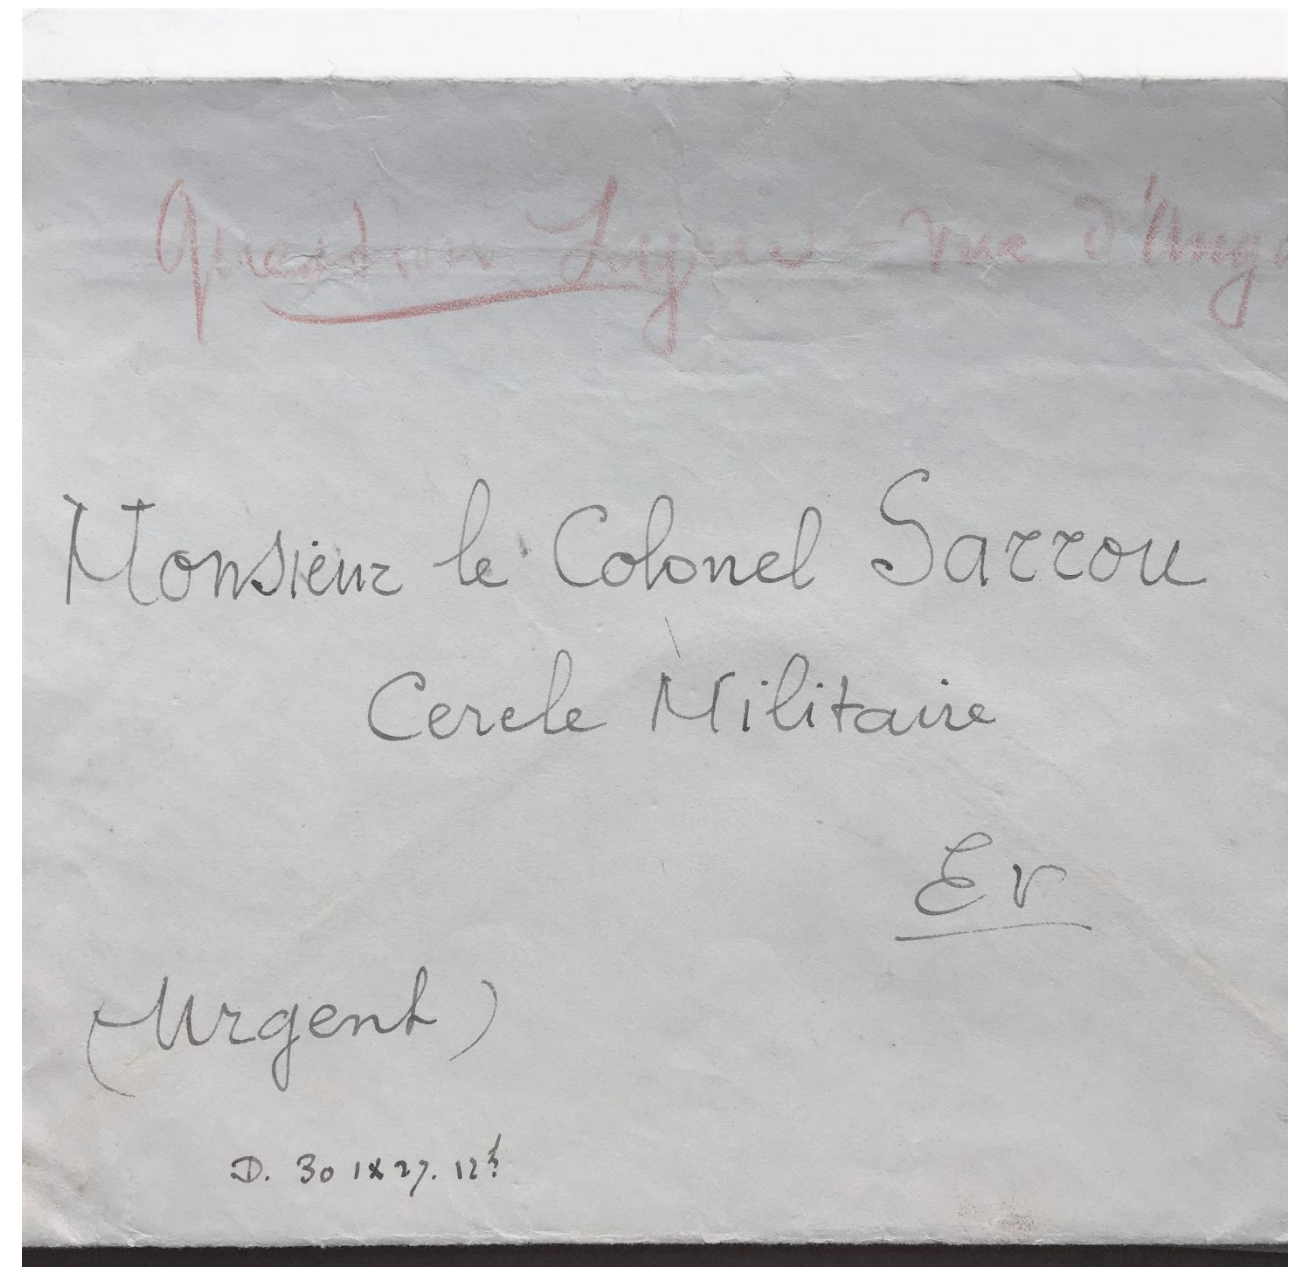 Question - vue d'Ang
Monsieur le Colonel Sarrou
Cercle Militaire
Ev
(Urgent)
D. 30 IX 27. 12h